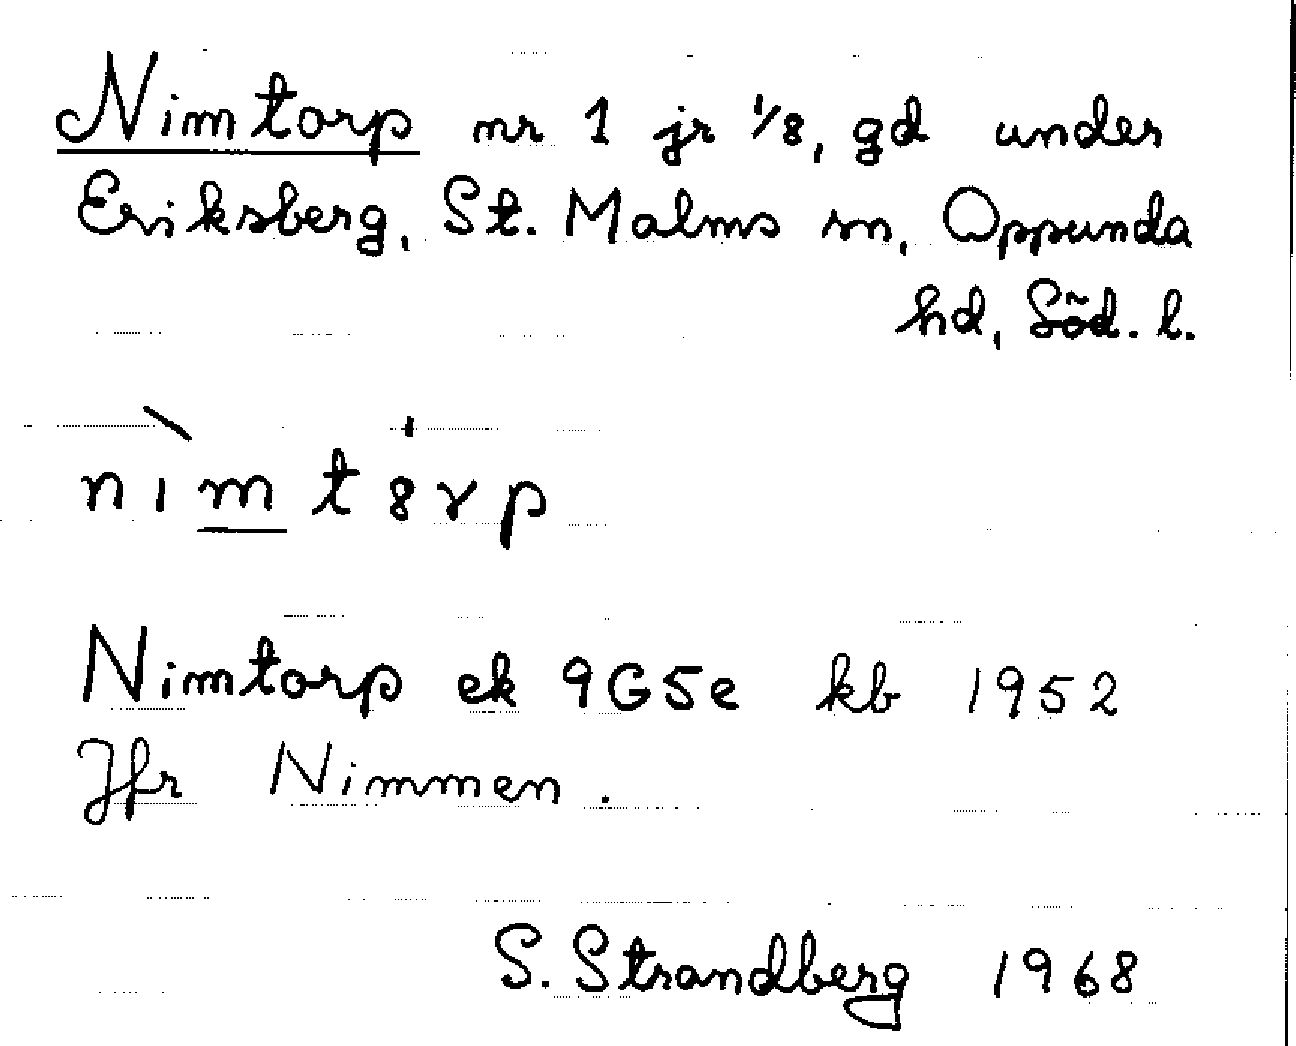 Nimtorp nr 1 jr 1/8, gd under
Eriksberg, St. Malms sn, Oppunda
hd, Söd. l.
nìmt8rp
Nimtorp ek 9G5e kb 1952
Jfr Nimmen.
S. Strandberg 1968